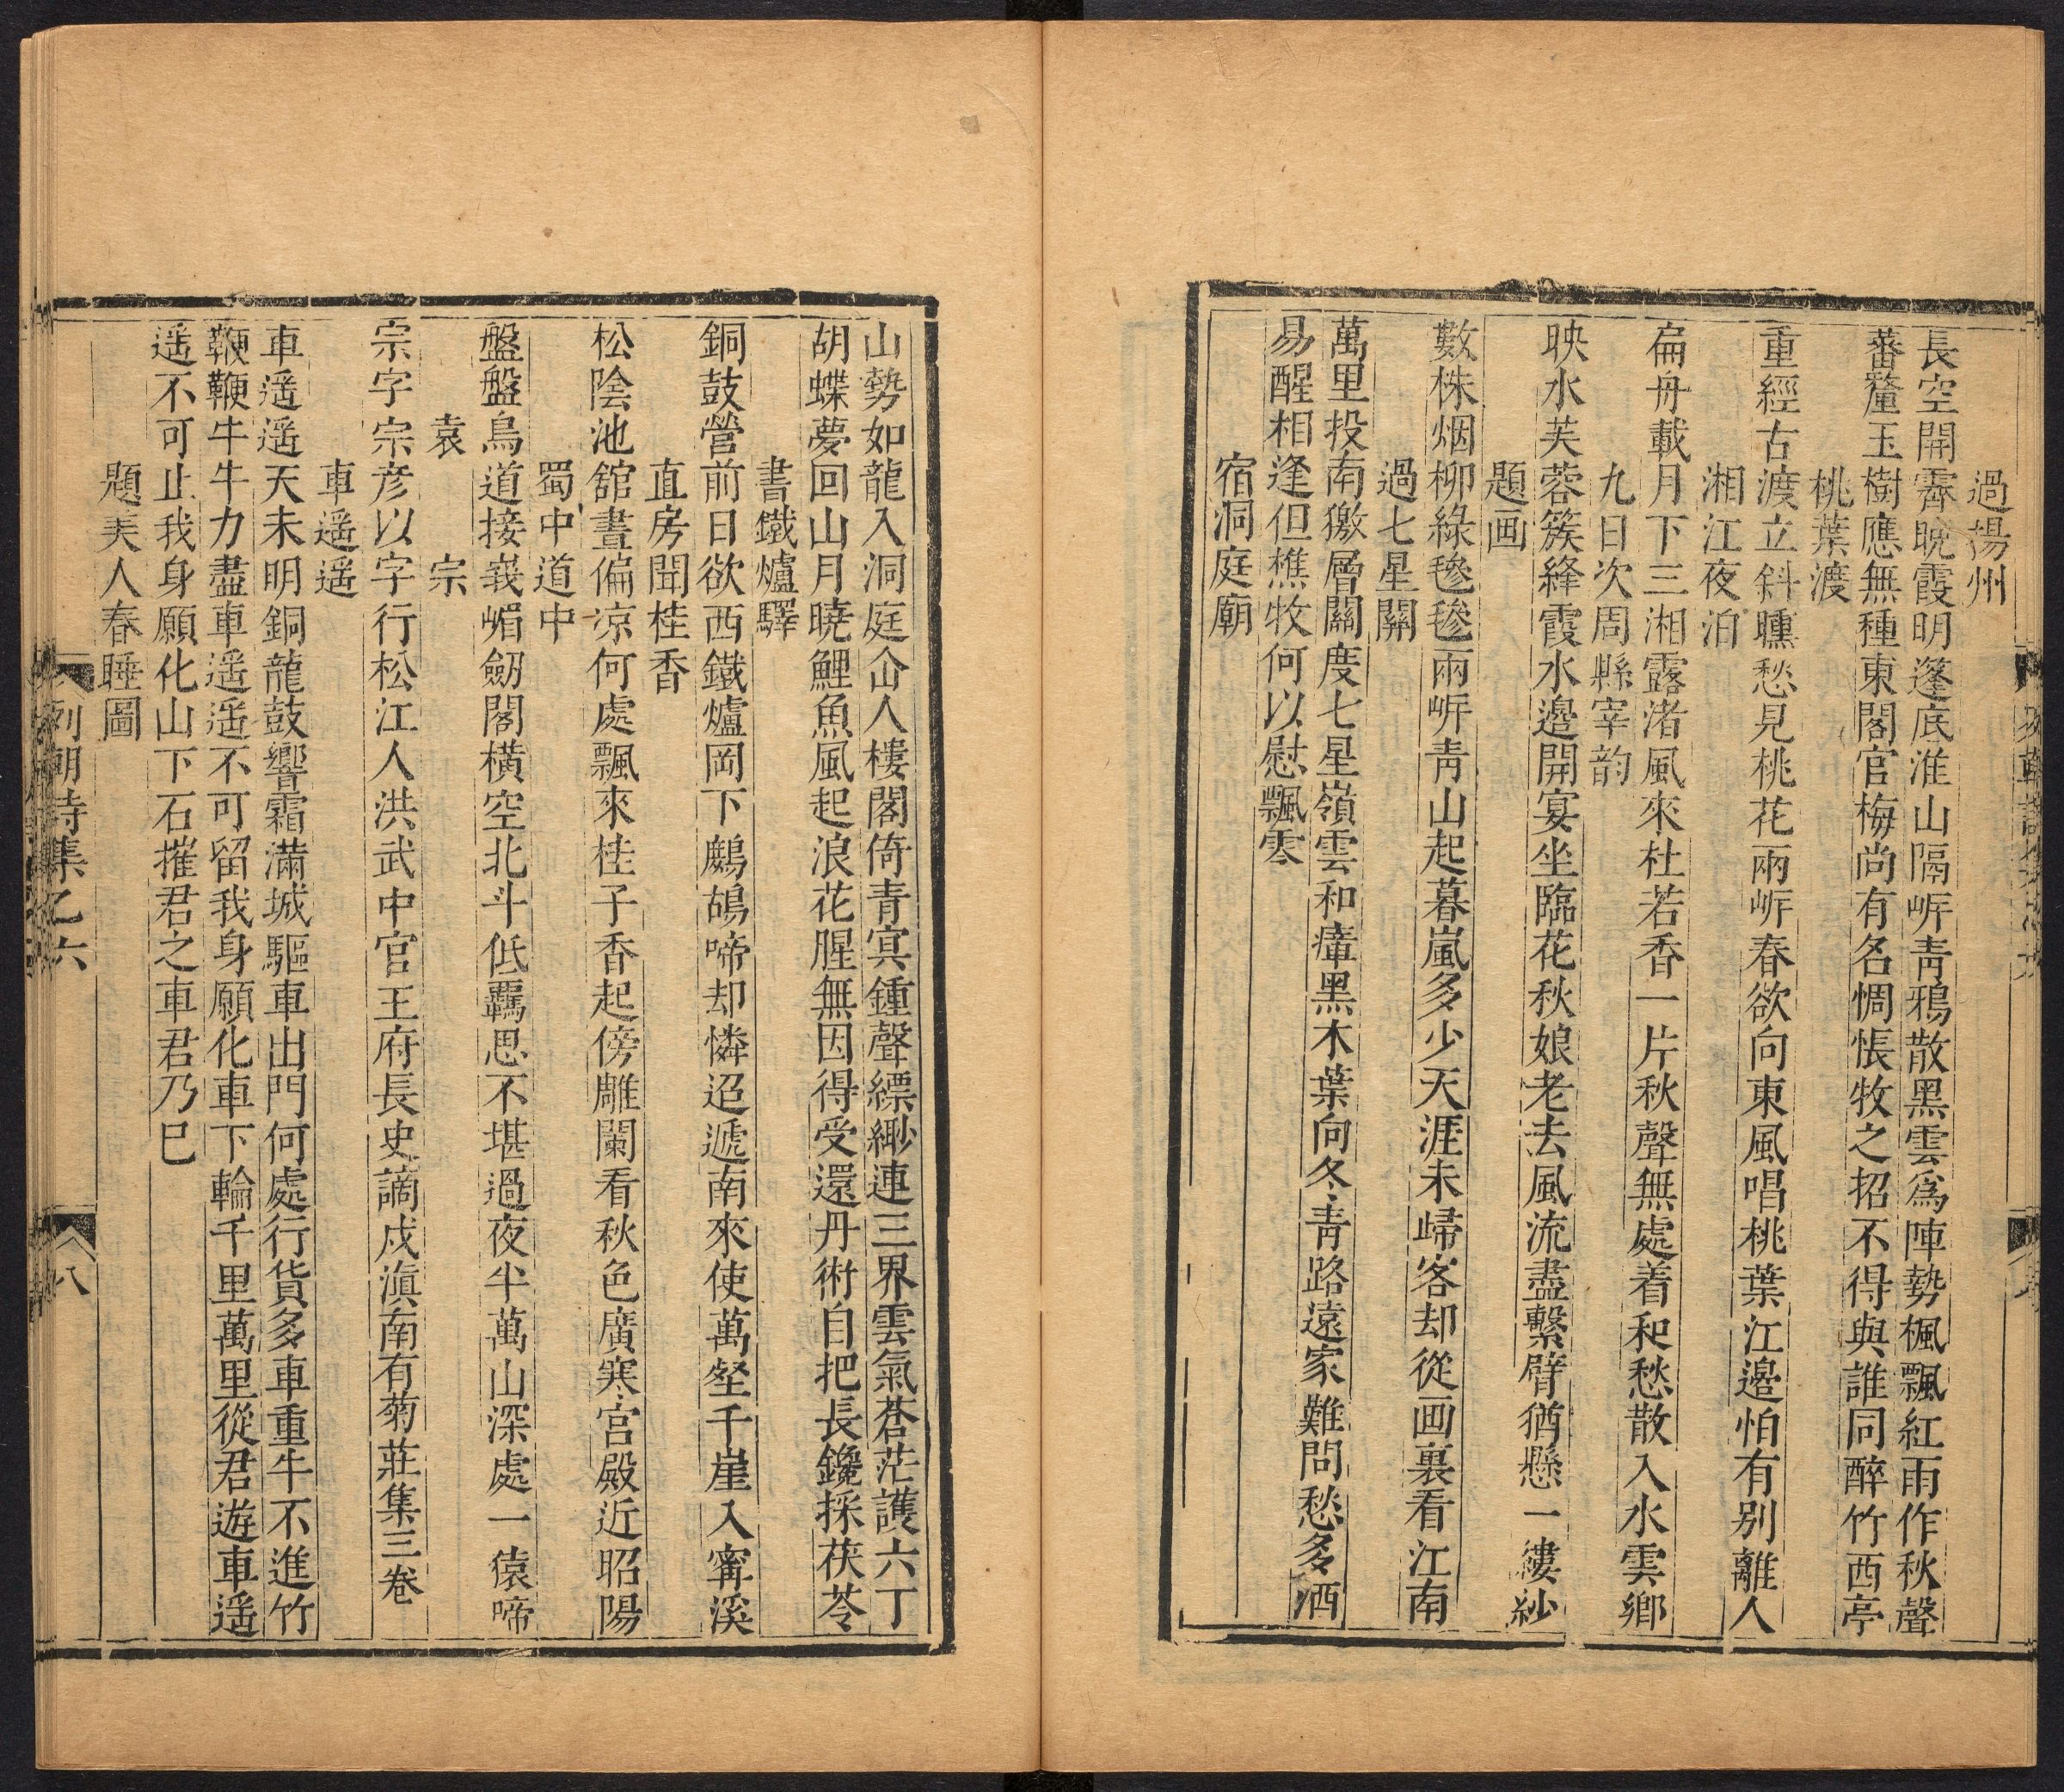 過揚州
長空開霽晚霞明蓬底淮山隔㟁靑鴉散黑雲爲陣勢楓飄紅雨作秋聲
蕃釐玉樹應無種東閣官梅尚有名惆悵牧之招不得與誰同醉竹西亭
桃葉渡
重經古渡立斜曛愁見桃花兩㟁春欲向東風唱桃葉江邊怕有別離人
湘江夜泊
扁舟載月下三湘露渚風來杜若香一片秋聲無處着和愁散入水雲鄉
九日次周縣宰韵
映水芙蓉簇絳霞水邊開宴坐臨花秋娘老去風流盡繫臂猶懸一縷紗
題画
數株烟柳綠毿毿兩㟁靑山起暮嵐多少天涯未歸客却從画裏看江南
過七星關
萬里投南徼層關度七星嶺雲和瘴黑木葉向冬靑路遠家難問愁多洒
易醒相逢但樵牧何以慰飄零
宿洞庭廟
山勢如龍入洞庭企人樓閣倚青㝠鍾聲縹緲連三界雲氣蒼茫護六丁
胡蝶夢回山月曉鯉魚風起浪花腥無因得受還丹術自把長鑱採茯苓
書鐵爐驛
銅鼓營前日欲西鐵爐岡下鷓鴣啼却憐迢遞南來使萬壑千崖入甯溪
直房聞桂香
松陰池舘晝偏凉何處飄來桂子香起傍雕闌看秋色廣寒宮殿近昭陽
蜀中道中
盤盤鳥道接峩嵋劒閣橫空北斗低羈思不堪過夜半萬山深處一猿啼
袁宗
宗字宗彥以字行松江人洪武中官王府長史謫戍滇南有菊莊集三卷
車遥遥
車遥遥天未明銅龍鼓響霜滿城驅車出門何處行貨多車重牛不進竹
鞭鞭牛牛力盡車遥遥不可留我身願化車下輪千里萬里從君遊車遥
遥不可止我身願化山下石摧君之車君乃已
題美人春睡圖
列朝詩集乙六
八